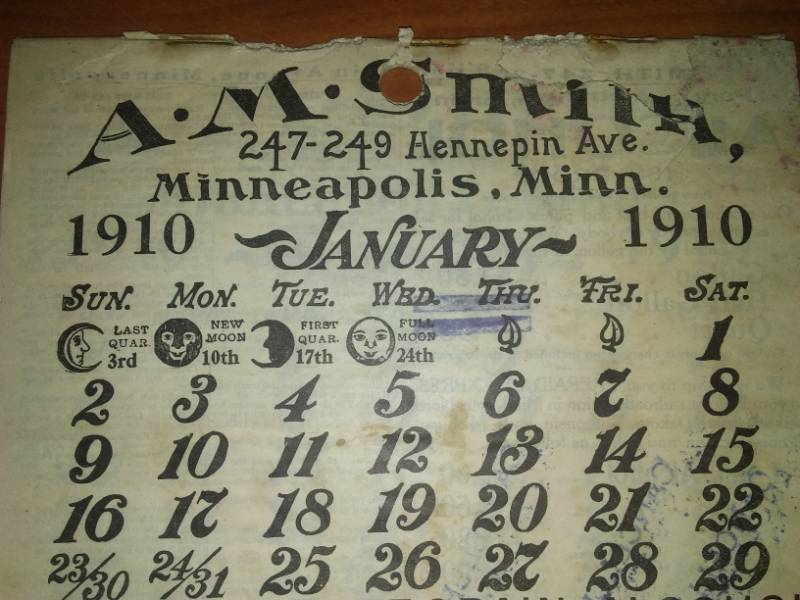 A. M. Smith,
247-249 Hennepin Ave.
Minneapolis, Minn.
1910 JANUARY 1910
SUN. MON. TUE. WED. THU. FRI. SAT.
LAST QUAR. 3rd NEW MOON 10th FIRST QUAR. 17th FULL MOON 24th 1
2 3 4 5 6 7 8
9 10 11 12 13 14 15
16 17 18 19 20 21 22
23/30 24/31 25 26 27 28 29